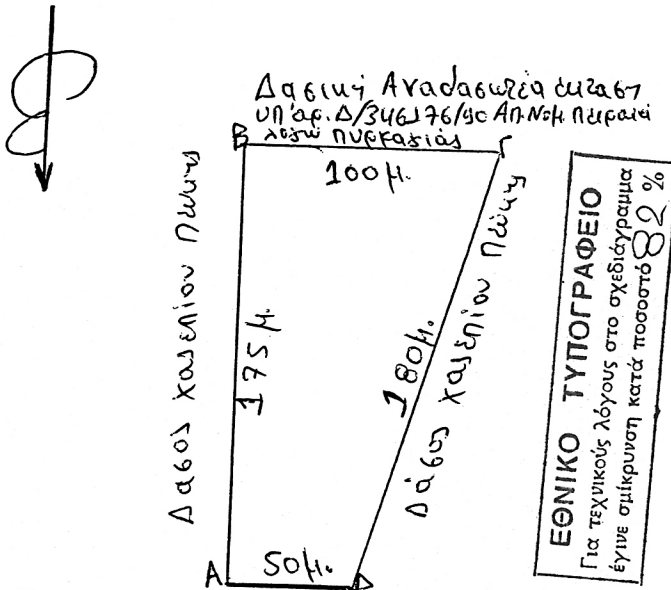 Δασική Αναδασωτέα έκταση
υπ' αρ. Δ/3461 76/90 Απ. Νομ. Πειραιά
λόγω πυρκαγιάς
Β
Γ
100 μ.
Δάσος χαλεπίου Πεύκης
175 μ.
180 μ.
Δάσος χαλεπίου Πεύκης
Α
50 μ.
Δ
ΕΘΝΙΚΟ ΤΥΠΟΓΡΑΦΕΙΟ
Για τεχνικούς λόγους στο σχεδιάγραμμα
έγινε σμίκρυνση κατά ποσοστό 82 %